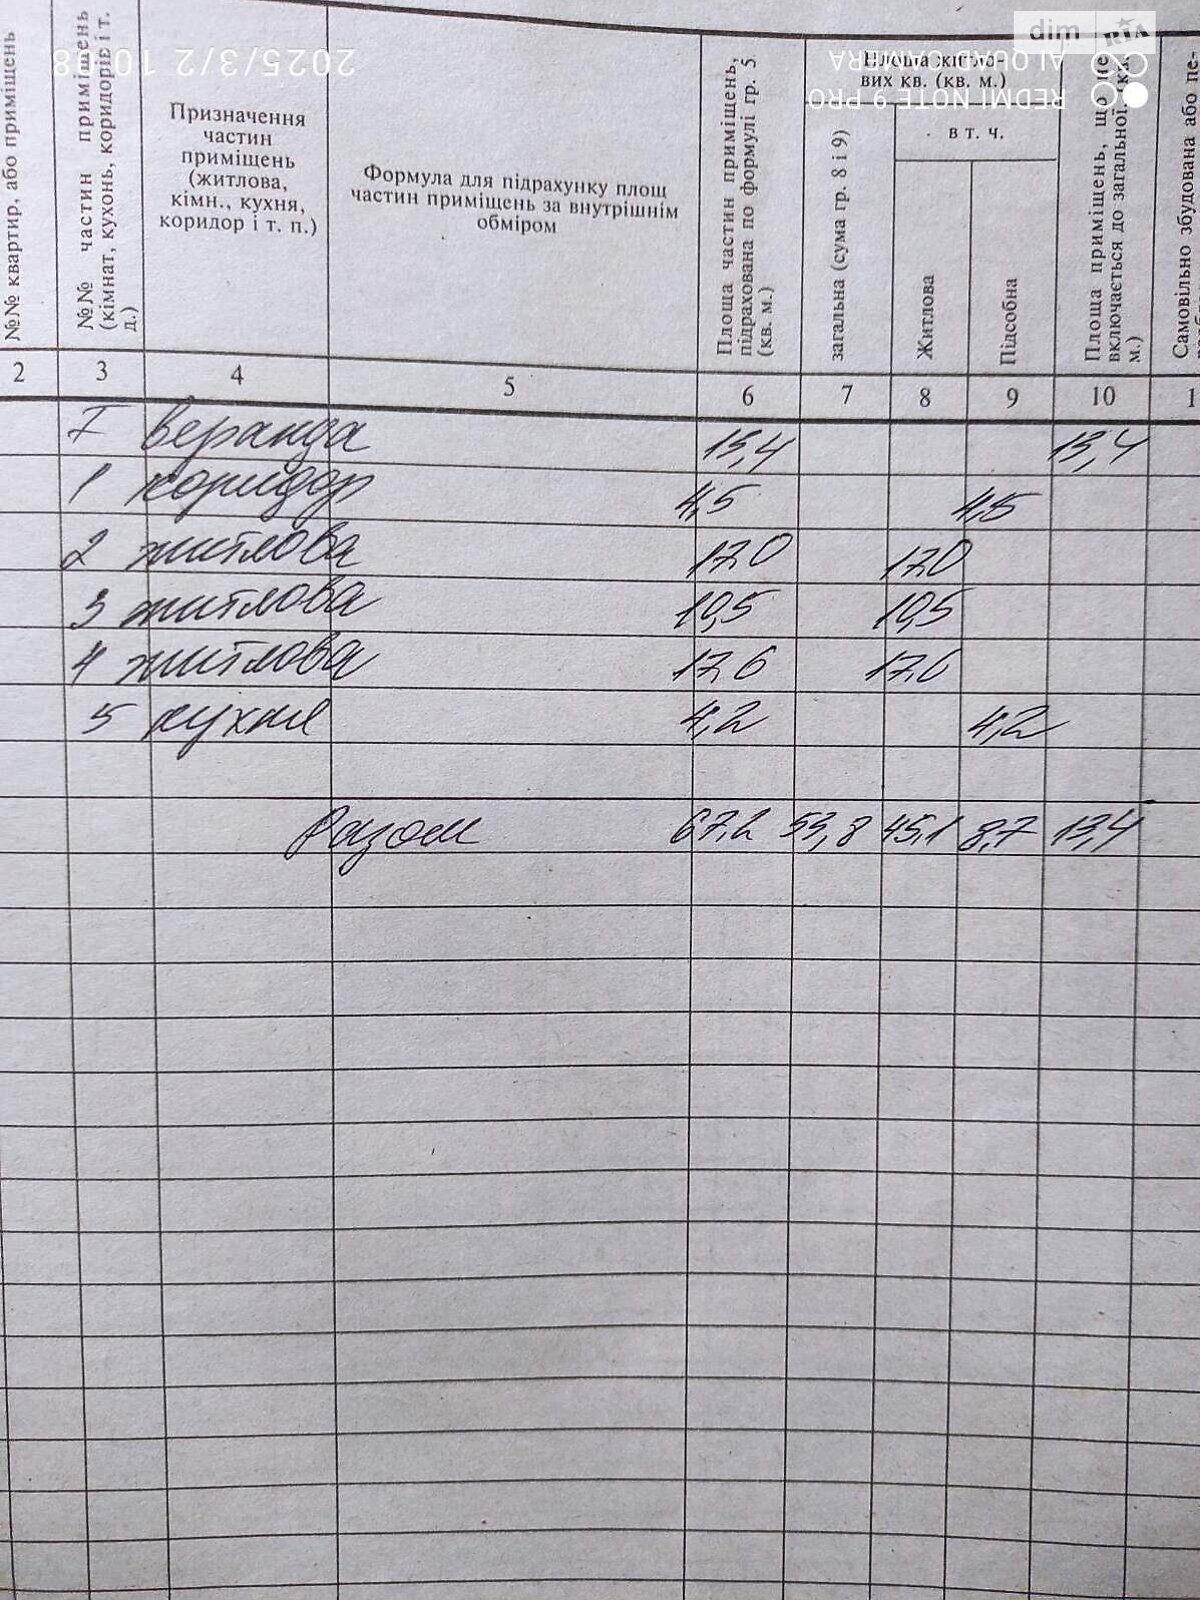 dim RIA
2025/3/2 10:08
REDMI NOTE 9 PRO
AI QUAD CAMERA
№№ квартир, або приміщень
№№ частин приміщень
(кімнат, кухонь, коридорів і т.
д.)
Призначення
частин
приміщень
(житлова,
кімн., кухня,
коридор і т. п.)
Формула для підрахунку площ
частин приміщень за внутрішнім
обміром
Площа частин приміщень,
підрахована по формулі гр. 5
(кв. м.)
Площа житло-
вих кв. (кв. м.)
загальна (сума гр. 8 і 9)
в т. ч.
Житлова
Підсобна
Площа приміщень, що не
включається до загальної (кв.
м.)
Самовільно збудована або пе-
2 3 4 5 6 7 8 9 10 1
I веранда 13,4 13,4
1 коридор 4,5 4,5
2 житлова 17,0 17,0
3 житлова 10,5 10,5
4 житлова 17,6 17,6
5 кухня 4,2 4,2
Разом 67,2 53,8 45,1 8,7 13,4